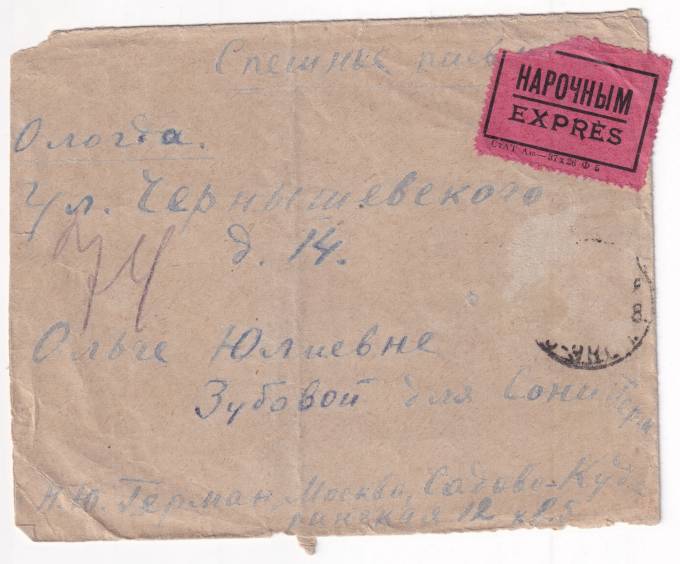 Спешное письмо
НАРОЧНЫМ
EXPRÈS
Вологда.
Ул. Чернышевского
д. 14.
74
Ольге Юлиевне
Зубовой для Сони Герм
Н. Ю. Герман, Москва, Садово-Куд
ринская 12 к